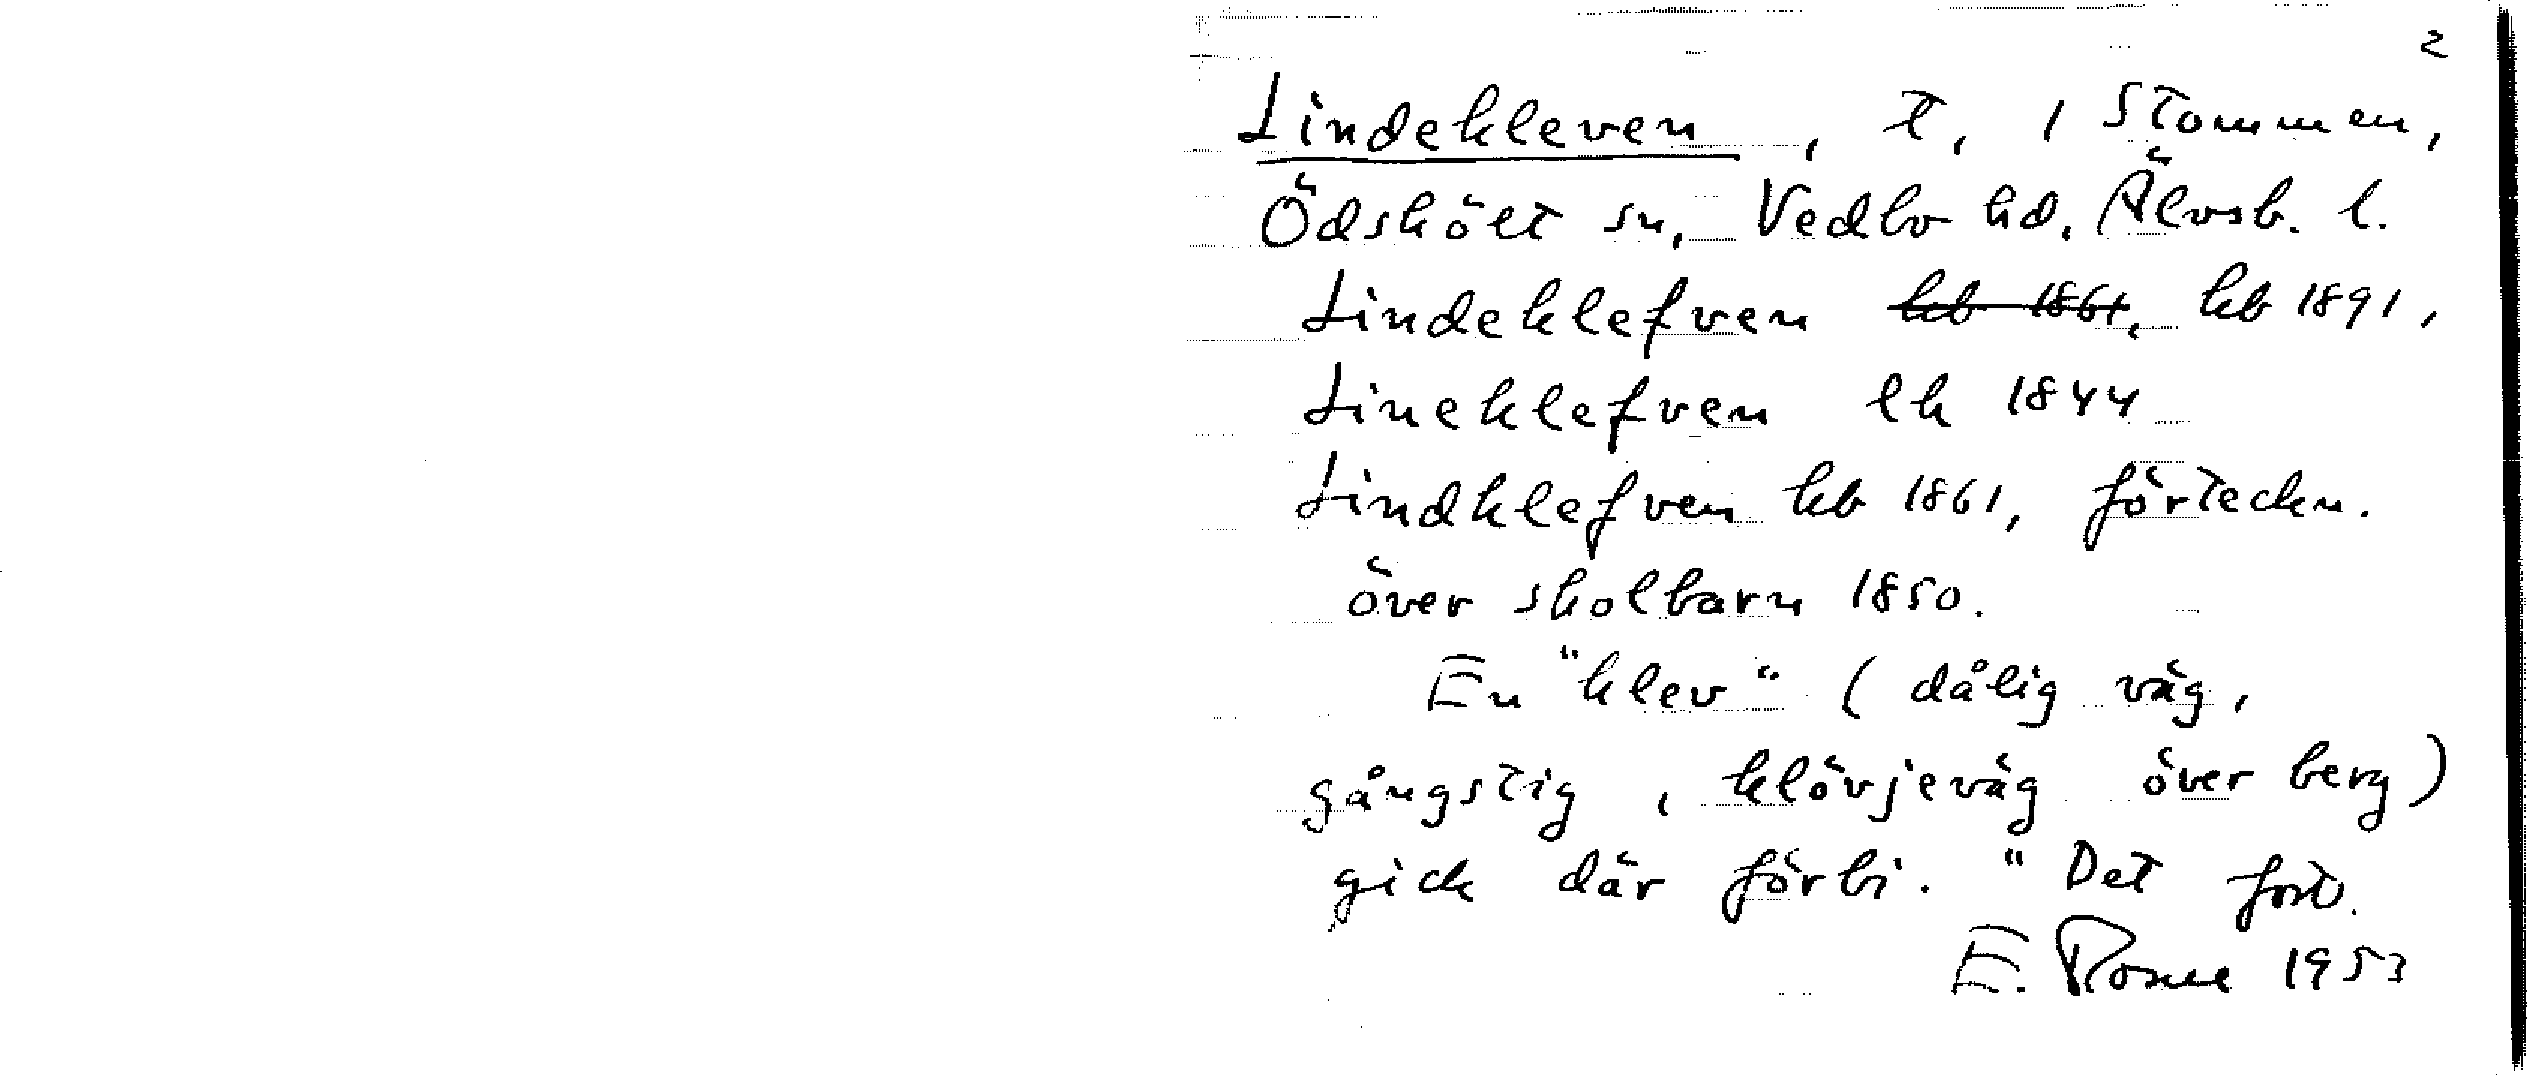 2
Lindekleven, t, 1 Stommen,
Ödskölt sn, Vedbo hd, Älvsb. l.
Lindeklefven kb 1861, kb 1891,
Lineklefven lk 1844
Lindklefven kb 1861, förteckn.
över skolbarn 1850.
En "klev" (dålig väg,
gångstig, klövjeväg över berg)
gick där förbi. " Det forts.
E. Rosne 1953